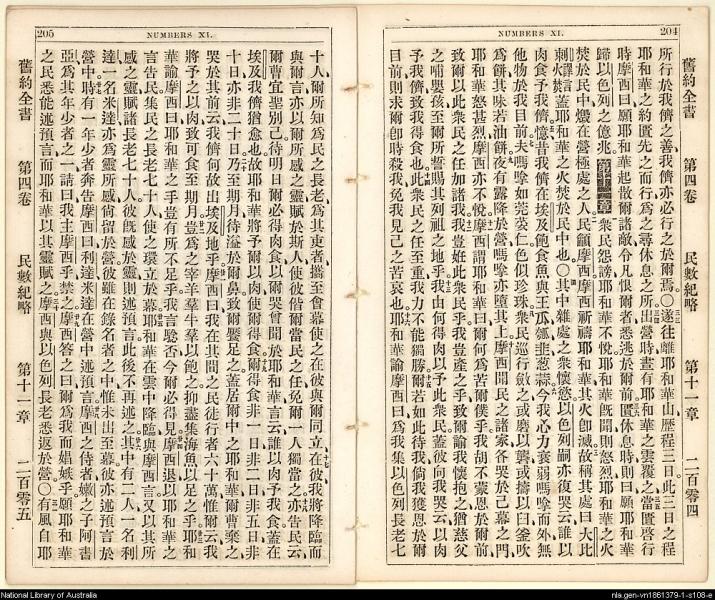 204
NUMBERS XI.
舊約全書 第四卷 民數紀略 第十一章 二百零四
所行於我儕之善我儕亦必行之於爾焉○遂往離耶和華山歷程三日此三日之程
耶和華之約匱先之而行爲之尋休息之所出營時晝有耶和華之雲覆之當匱啓行
時摩西曰願耶和華起散爾諸敵令凡恨爾者悉逃於爾前匱休息時則曰願耶和華
歸以色列之億兆第十一章衆民怨謗耶和華不悅耶和華既聞則怒烈耶和華之火
焚於民中燬在營極處之人民籲摩西摩西祈禱耶和華其火卽滅故稱其處曰大比
刺譯言火焚蓋耶和華之火焚於民中也○其中雜處之衆懷慾以色列嗣亦復哭云誰以
肉食予我儕憶昔我儕在埃及飽食魚與王瓜瓠韭葱蒜今我心力衰弱嗎嗱而外無
他物於我目前夫嗎嗱如芫荽仁色似珍珠衆民巡行斂之或磨以礱或擣以臼釜吹
爲餅其味若油餅夜有露降於營嗎嗱亦墮其上摩西聞民之諸家各哭於己幕之門
耶和華怒甚烈摩西亦不悅摩西謂耶和華曰爾何爲苦爾僕乎我胡不蒙恩於爾前
致爾以此衆民之任加諸我我豈妊此衆民乎我豈產之乎致爾諭我懷抱之猶慈父
之哺嬰孩至爾所誓賜其列祖之地乎我由何得肉以予此衆民蓋彼向我哭云以肉
予我儕致我得食也此衆民之任至重我力不能獨勝爾若如此待我倘我獲恩於爾
目前則求爾卽時殺我免我見己之苦哀也耶和華諭摩西曰爲我集以色列長老七
205
NUMBERS XI.
十人爾所知爲民之長老爲其吏者攜至會幕使之在彼與爾同立在彼我將降臨而
與爾言亦以爾所感之靈賦於斯人使彼偕爾當民之任免爾一人獨當之亦告民云
爾曹宜聖別己待明日爾必得肉食以爾哭曾聞於耶和華言云誰以肉予我食蓋在
埃及我儕猶愈也故耶和華將予爾以肉使爾得食爾得食非一日非二日非五日非
十日亦非二十日乃至期月待溢於爾鼻致爾饜足之蓋居爾中之耶和華爾曹棄之
哭於其前云我儕何故出埃及地乎摩西曰我在其間之民徒行者六十萬惟爾云我
將予之以肉致可食至期月豈爲之宰羊羣牛羣以飽之抑盡集海魚以足之乎耶和
華諭摩西曰耶和華之手豈有所不足乎我言騐否今爾必得見摩西退以耶和華之
言告民集民之長老七十人使之環立於幕耶和華在雲中降臨與摩西言又以其所
感之靈賦諸長老七十人彼既感於靈則述預言此後不再述之其中有二人一名利
達一名米達亦爲靈所感尙留於營彼雖在錄名者之中惟未出至幕彼亦述預言於
營中時有一年少者奔告摩西曰利達米達在營中述預言摩西之侍者嫩之子阿書
亞爲其年少者之一請曰我主摩西乎禁之摩西答之曰爾爲我而娼嫉乎願耶和華
之民悉能述預言而耶和華以其靈賦之摩西與以色列長老悉返於營○有風自耶
舊約全書 第四卷 民數紀略 第十一章 二百零五
National Library of Australia
nla.gen-vn1861379-1-s108-e